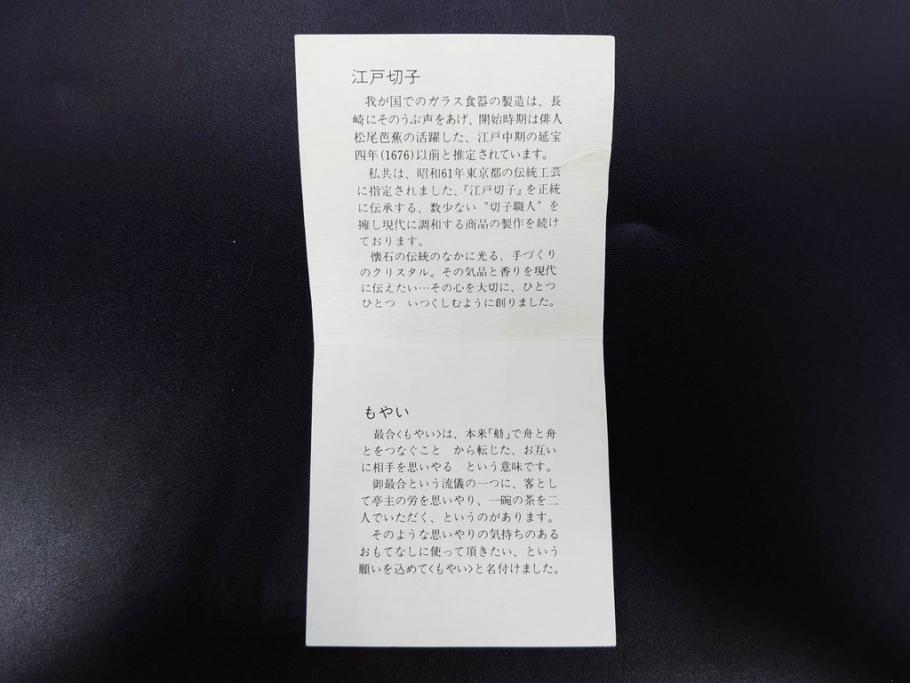 江戸切子
我が国でのガラス食器の製造は、長
崎にそのうぶ声をあげ、開始時期は俳人
松尾芭蕉の活躍した、江戸中期の延宝
四年(1676)以前と推定されています。
私共は、昭和61年東京都の伝統工芸
に指定されました、『江戸切子』を正統
に伝承する、数少ない〝切子職人〟を
擁し現代に調和する商品の製作を続け
ております。
懐石の伝統のなかに光る、手づくり
のクリスタル。その気品と香りを現代
に伝えたい…その心を大切に、ひとつ
ひとつ　いつくしむように創りました。
もやい
最合〈もやい〉は、本来「舫」で舟と舟
とをつなぐこと　から転じた、お互い
に相手を思いやる　という意味です。
御最合という流儀の一つに、客とし
て亭主の労を思いやり、一碗の茶を二
人でいただく、というのがあります。
そのような思いやりの気持ちのある
おもてなしに使って頂きたい、という
願いを込めて〈もやい〉と名付けました。